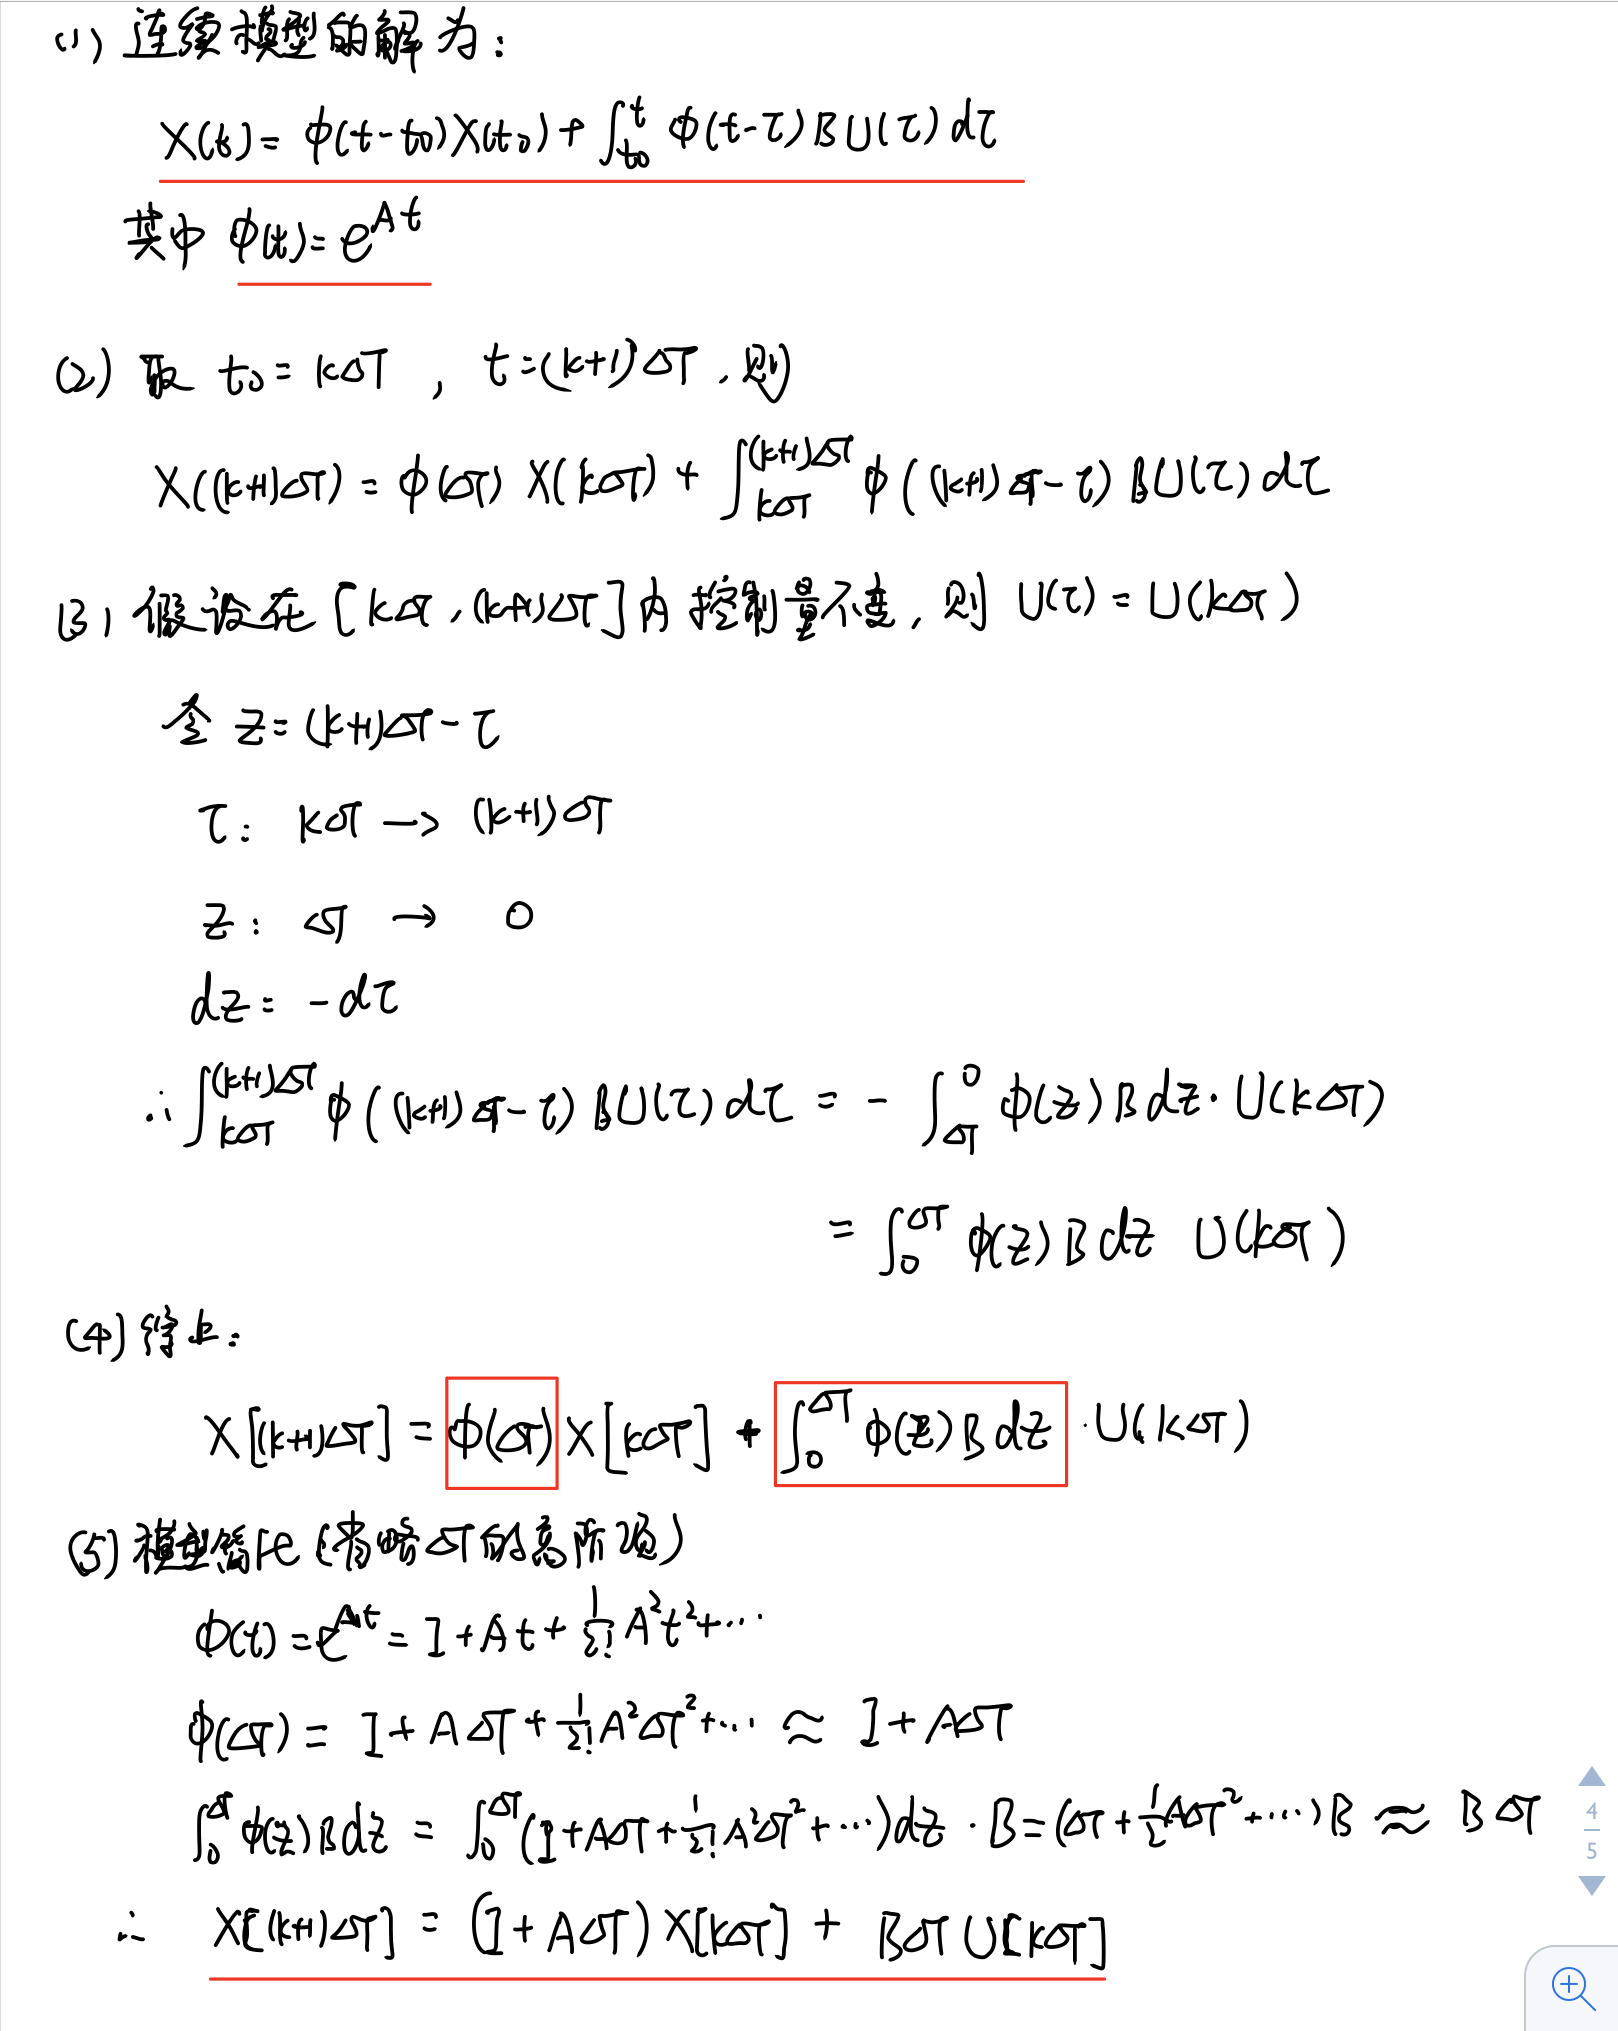 (1) 连续模型的解为:
X(t) = φ(t-t₀)X(t₀) + ∫_{t₀}^{t} φ(t-τ) B U(τ) dτ
其中 φ(t) = e^{At}
(2) 取 t₀ = kΔT , t = (k+1)ΔT , 则
X((k+1)ΔT) = φ(ΔT) X(kΔT) + ∫_{kΔT}^{(k+1)ΔT} φ((k+1)ΔT-τ) B U(τ) dτ
(3) 假设在 [kΔT, (k+1)ΔT] 内控制量不变, 则 U(τ) = U(kΔT)
令 z = (k+1)ΔT - τ
τ: kΔT → (k+1)ΔT
z: ΔT → 0
dz = -dτ
∴ ∫_{kΔT}^{(k+1)ΔT} φ((k+1)ΔT-τ) B U(τ) dτ = - ∫_{ΔT}^{0} φ(z) B dz · U(kΔT)
= ∫_{0}^{ΔT} φ(z) B dz U(kΔT)
(4) 综上:
X[(k+1)ΔT] = φ(ΔT) X[kΔT] + ∫_{0}^{ΔT} φ(z) B dz · U(kΔT)
(5) 模型简化 (省略ΔT的高阶项)
φ(t) = e^{At} = I + At + 1/2! A²t² + ···
φ(ΔT) = I + AΔT + 1/2! A²ΔT² + ··· ≈ I + AΔT
∫_{0}^{ΔT} φ(z) B dz = ∫_{0}^{ΔT} (I + AΔT + 1/2! A²ΔT² + ···) dz · B = (ΔT + 1/2 AΔT² + ···) B ≈ BΔT
∴ X[(k+1)ΔT] = (I + AΔT) X[kΔT] + BΔT U[kΔT]
4
5